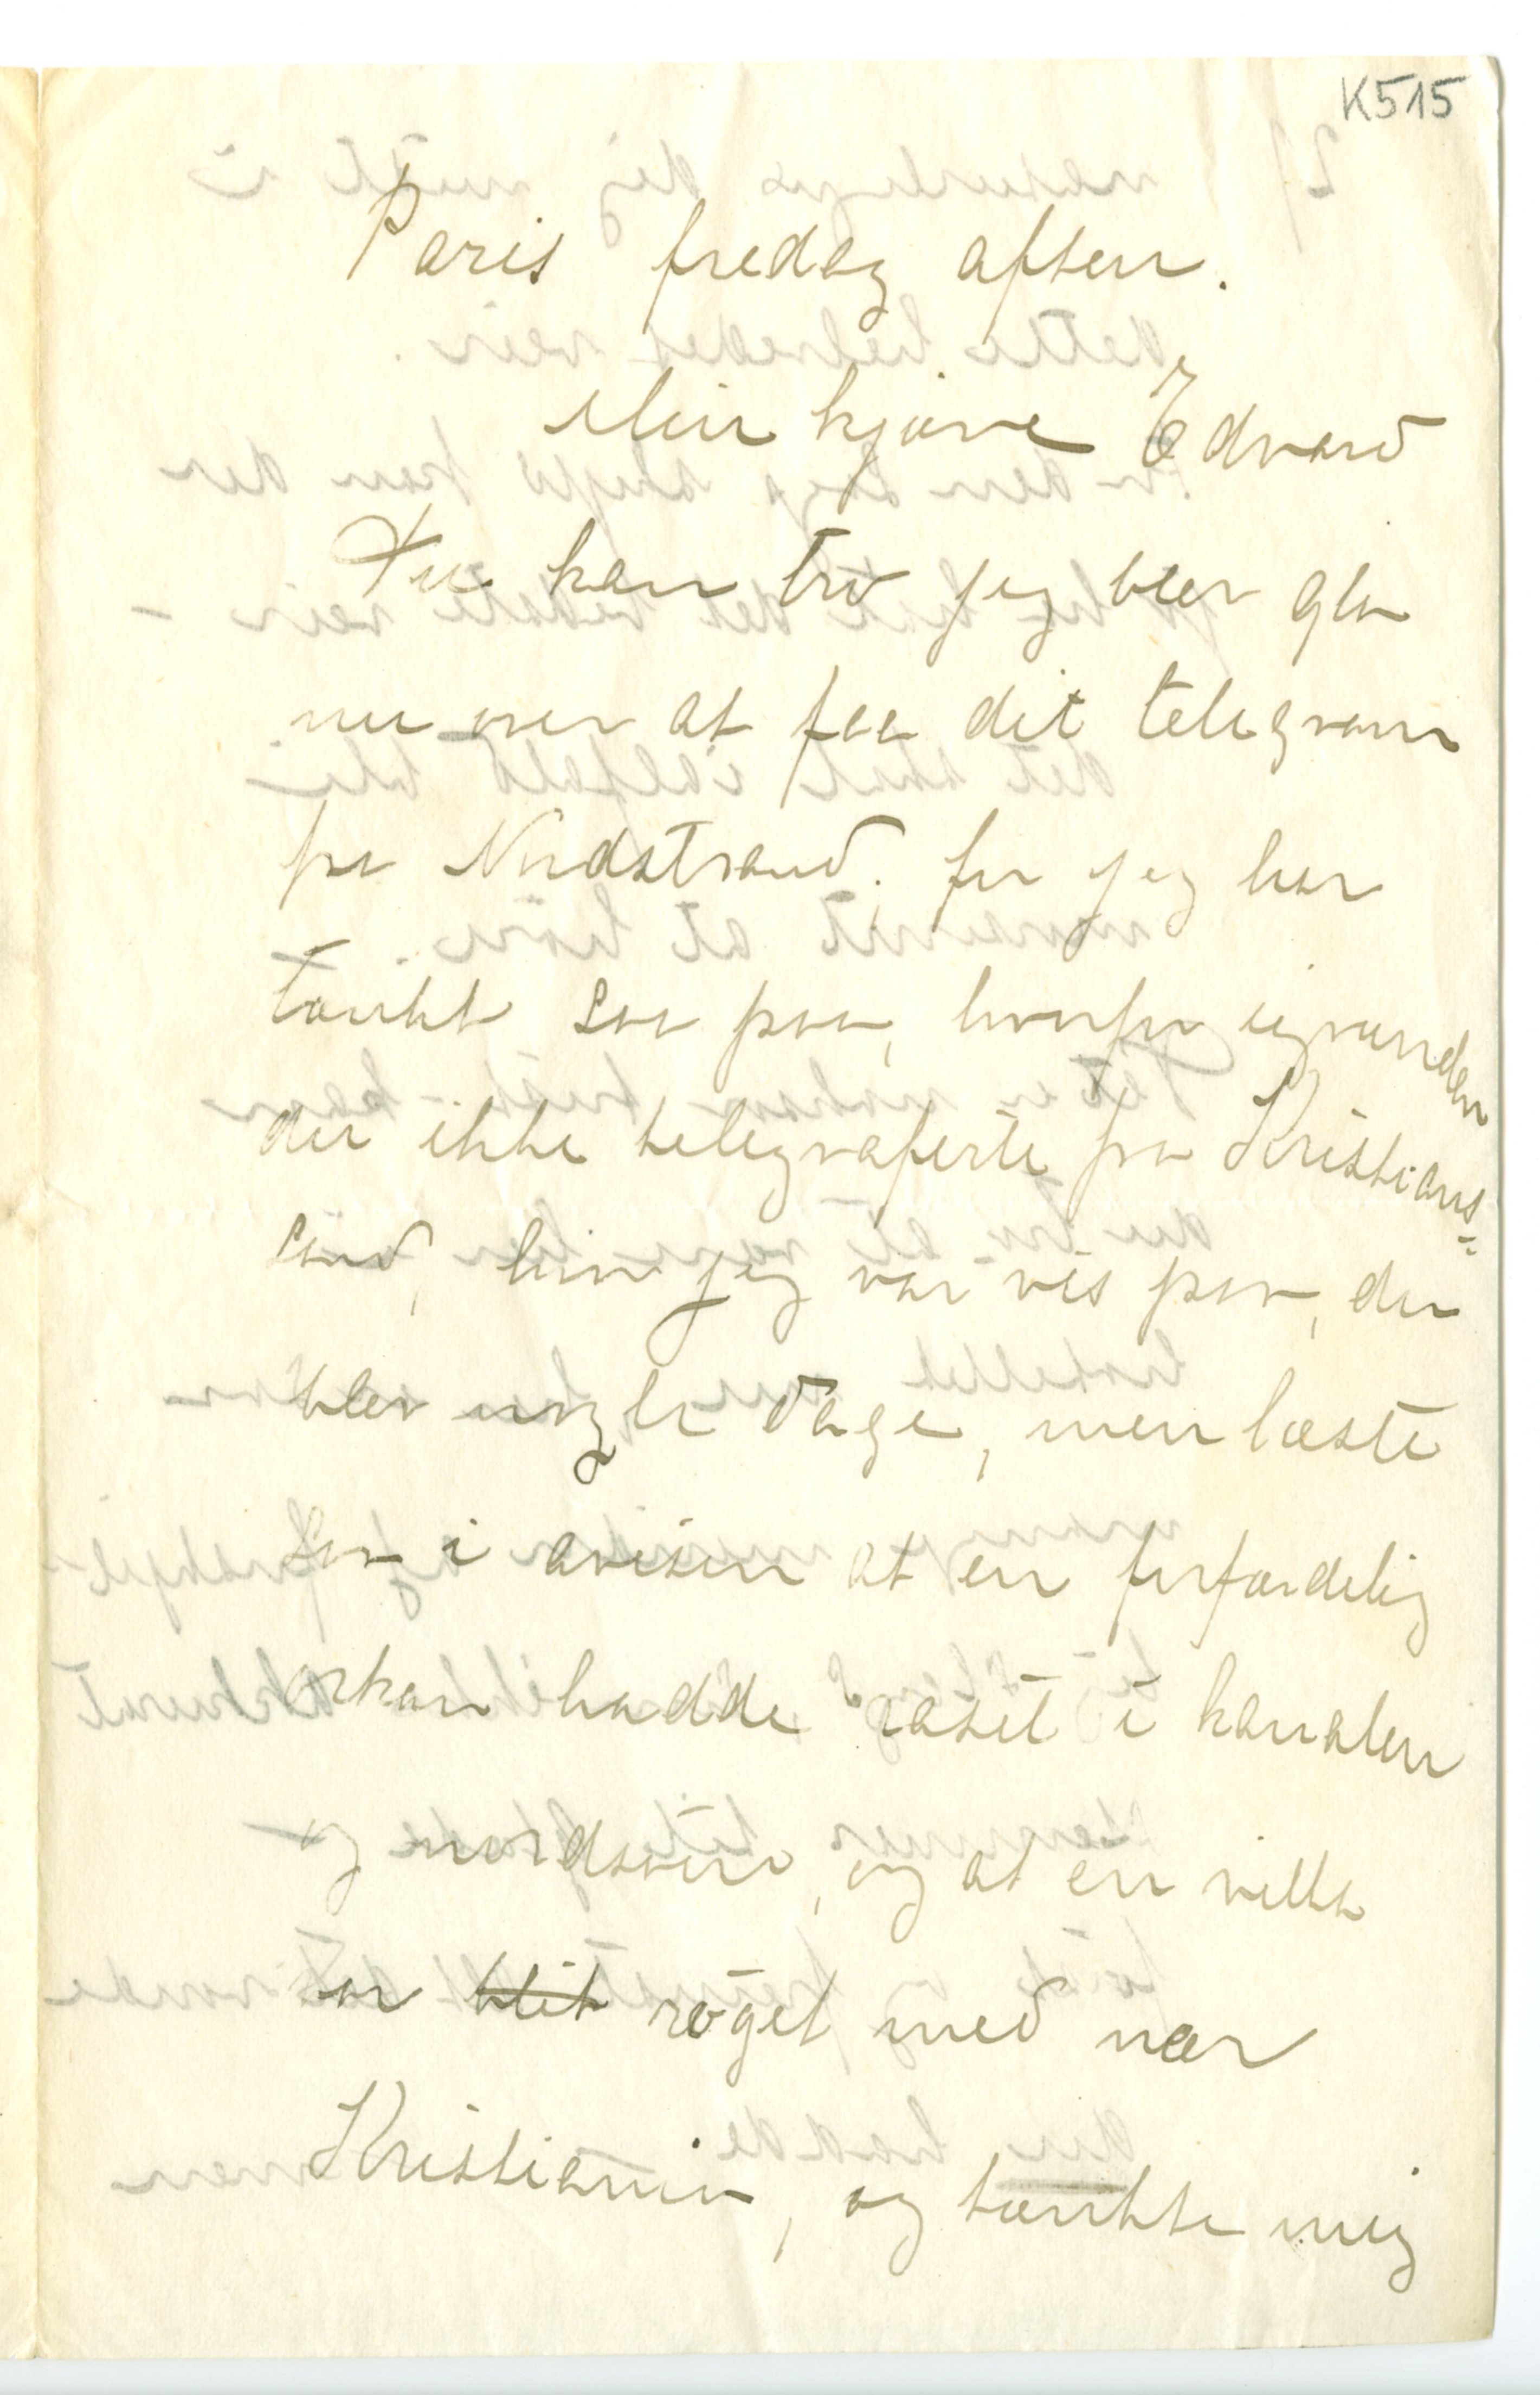 K515
Paris fredag aften.
Min kjære Edvard
Du kan tro jeg blev gla
nu over at faa dit telegram
fra Nordstrand; for jeg har
tænkt saa paa, hvorfor igrunden
du ikke telegraferte fra Kristians-
sand, hvor jeg var vis paa, du
blev nogle dage, men læste
saa i avisen at en forfærdelig
orkan hadde raset i kanalen
og nordsøen, og at en villa
var blit røget med nær
Kristiania, og tænkte mig